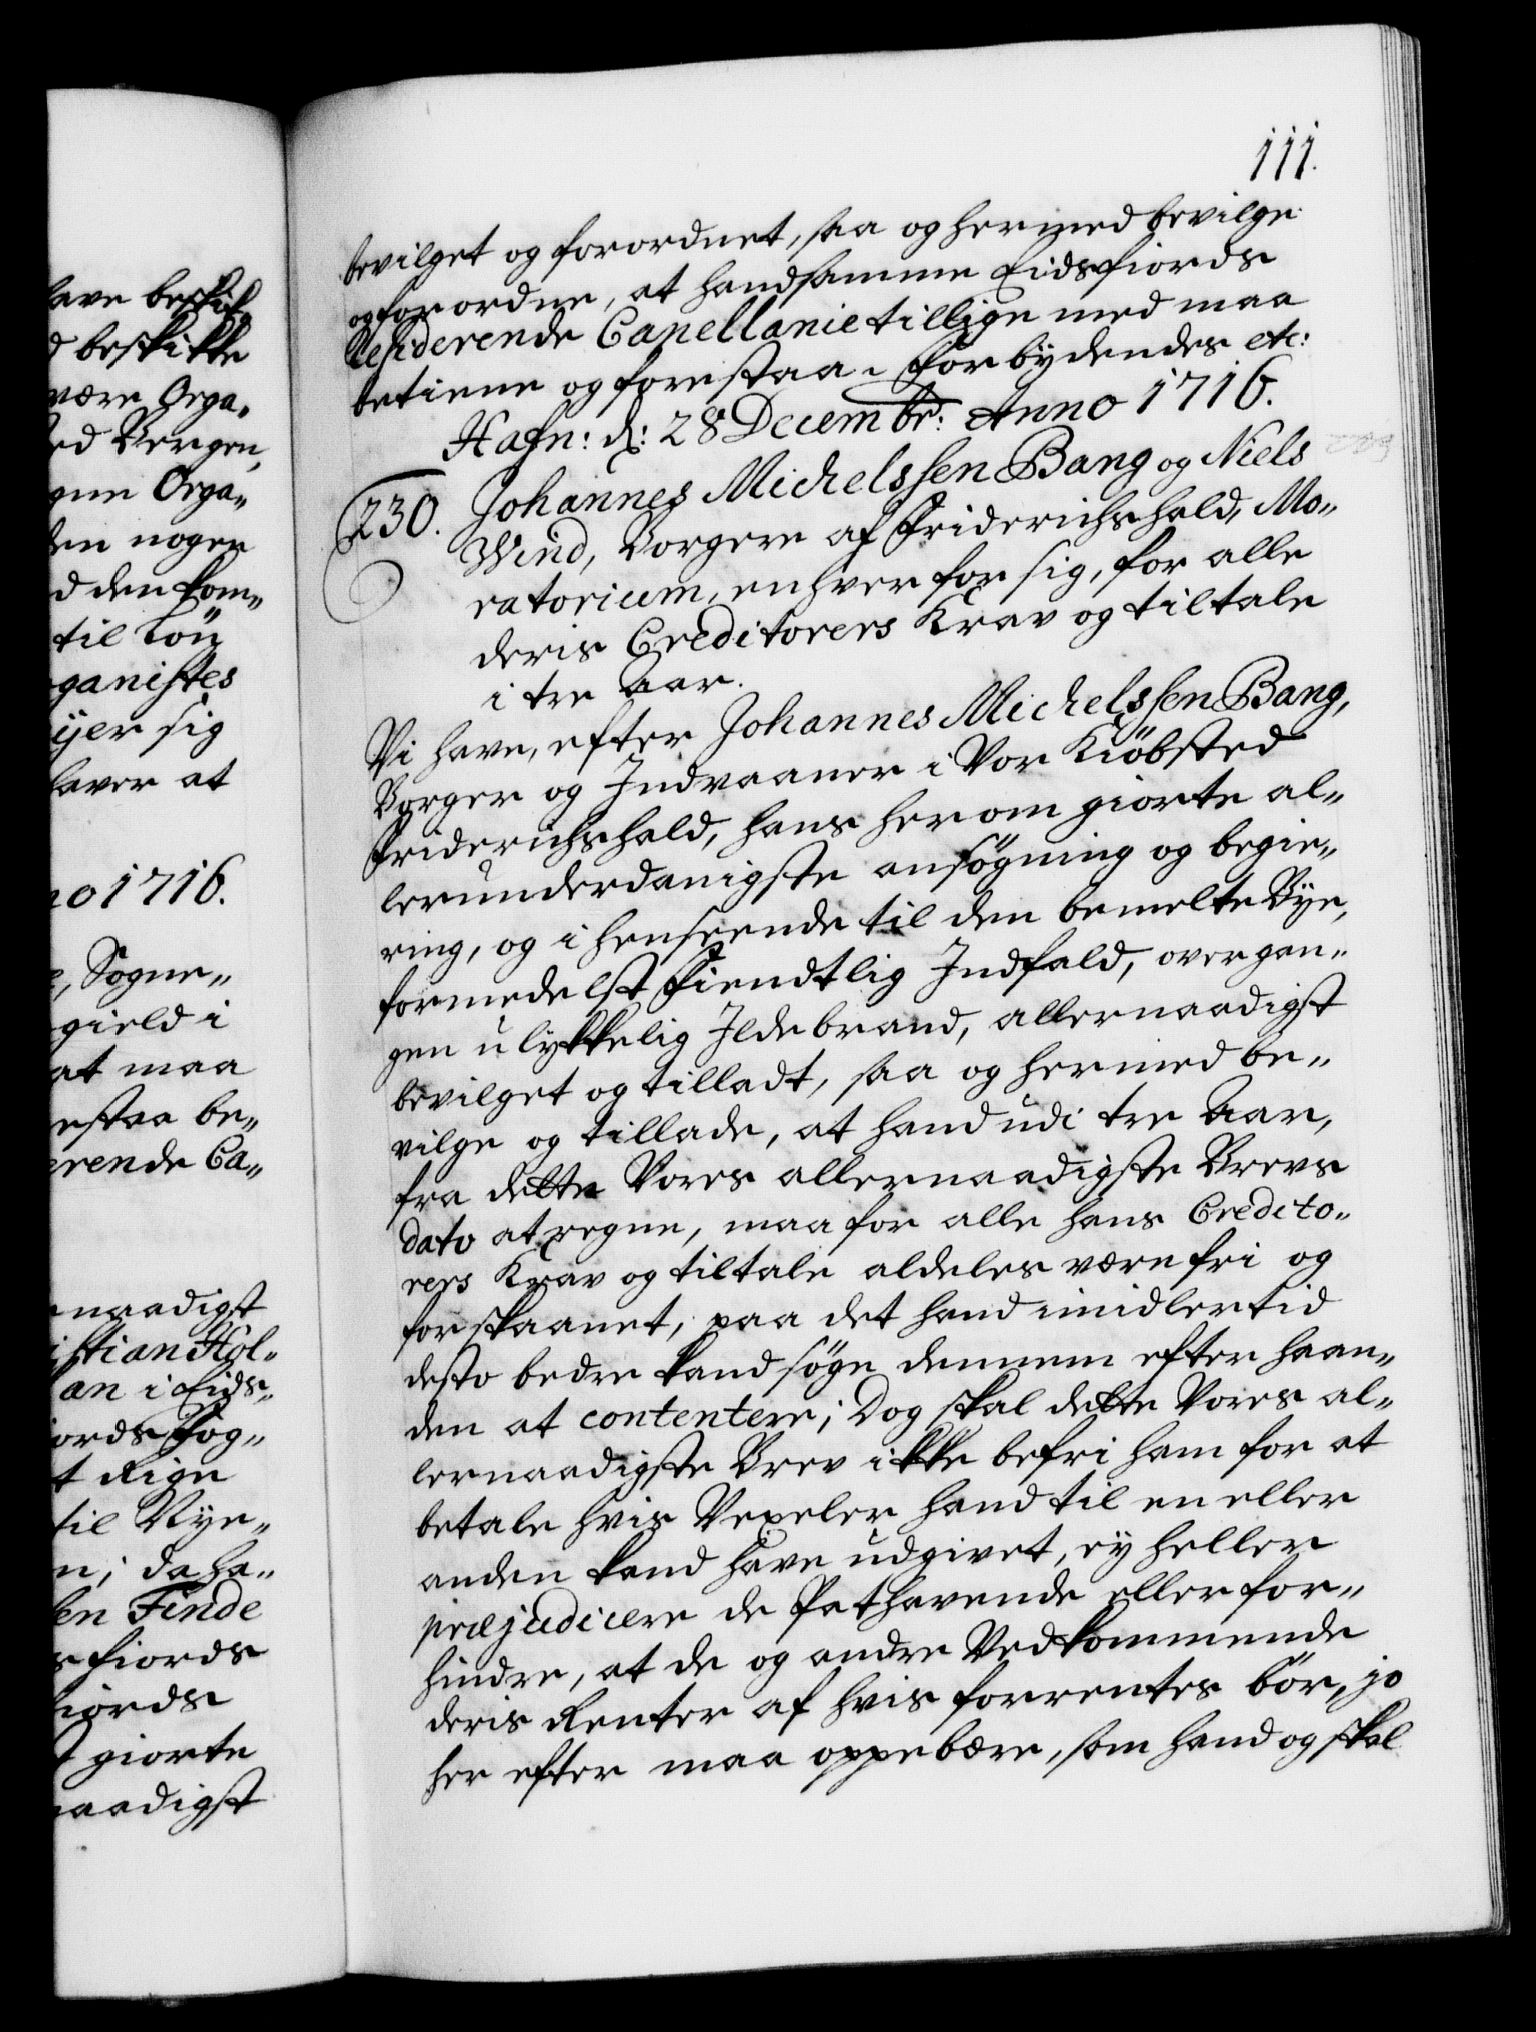 111.
bevilget og forordnet, saa og hermed bevilge
og forordne, at hand samme Eidsfiords
Residerende Capellanie tillige med maa
betiene og forestaa. Forbydendes etc:
Hafn: d: 28 Decembr: Anno 1716.
230. Johannes Michelssen Bang og Niels
Wind, Borgere af Friderichshald, Mo„
ratorium, enhver for sig, for alle
deris Creditorers Krav og tiltale
i tre Aar.
Vi have, efter Johannes Michelssen Bang,
Borger og Indvaaner i Vor Kiöbsted
Friderichshald, hans herom giorte al„
lerunderdanigste ansögning og begie„
ring, og i henseende til den bemelte Bye,
formedelst Fiendtlig Indfald, overgan„
gen ulykkelig Ildebrand, allernaadigst
bevilget og tilladt, saa og hermed be„
vilge og tillade, at hand udi tre Aar,
fra dette Vores allernaadigste Brevs
dato at regne, maa for alle hans Credito„
rers Krav og tiltale aldeles være fri og
forskaanet, paa det hand imidlertid
desto bedre kand söge dennem efter haan„
den at contentere; Dog skal dette Vores al„
lernaadigste Brev ikke befri ham for at
betale hvis Vexeler hand til en eller
anden kand have udgivet, ey heller
præjudicere de Pathavende eller for„
hindre, at de og andre Vedkommende
deris Renter af hvis forrentes bör, jo
her efter maa oppebære, som hand og skal
lave beskik„
d beskikke
være Orga„
ed Bergen,
gne Orga„
den nogen
d den kom„
til Lön
ganistes
ijer sig
laver at
no 1716.
e, Sogne„
gield i
at maa
estaa be„
erende Ca„
naadigst
istian Hol„
an i Eids„
iords Fog„
t Rige
til Nye„
n; da ha„
sen Finde
s fiords
fiords
t giorte
naadigst